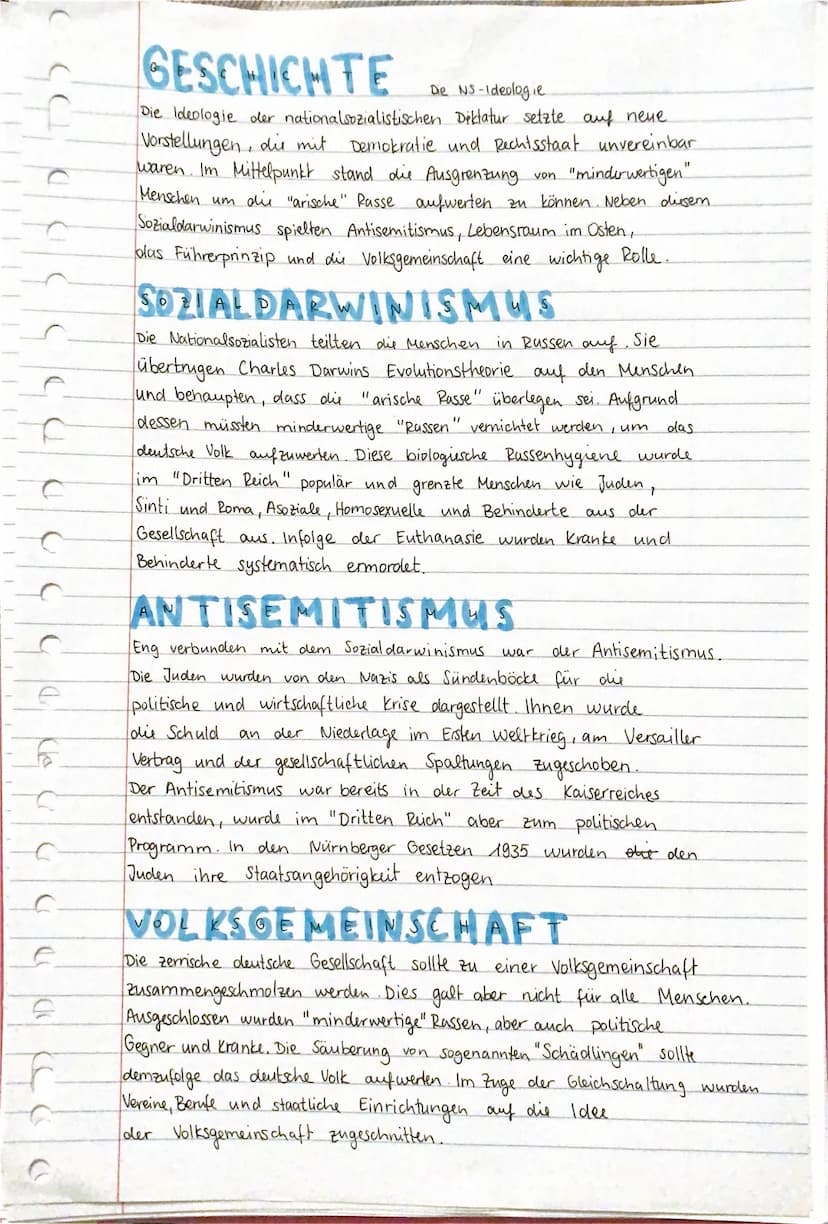 GESCHICHTE De NS-Ideologie
Die Ideologie der nationalsozialistischen Diktatur setzte auf neue
Vorstellungen, die mit Demokratie und Rechtsstaat unvereinbar
waren. Im Mittelpunkt stand die Ausgrenzung von "minderwertigen"
Menschen um die "arische" Rasse aufwerten zu können. Neben diesem
Sozialdarwinismus spielten Antisemitismus, Lebensraum im Osten,
das Führerprinzip und die Volksgemeinschaft eine wichtige Rolle.
SOZIALDARWINISMUS
Die Nationalsozialisten teilten die Menschen in Rassen auf. Sie
übertrugen Charles Darwins Evolutionstheorie auf den Menschen
und behaupten, dass die "arische Rasse" überlegen sei. Aufgrund
dessen müssten minderwertige "Rassen" vernichtet werden, um das
deutsche Volk aufzuwerten. Diese biologische Rassenhygiene wurde
im "Dritten Reich" populär und grenzte Menschen wie Juden,
Sinti und Roma, Asoziale, Homosexuelle und Behinderte aus der
Gesellschaft aus. Infolge der Euthanasie wurden Kranke und
Behinderte systematisch ermordet.
ANTISEMITISMUS
Eng verbunden mit dem Sozialdarwinismus war der Antisemitismus.
Die Juden wurden von den Nazis als Sündenböcke für die
politische und wirtschaftliche Krise dargestellt. Ihnen wurde
die Schuld an der Niederlage im Ersten Weltkrieg, am Versailler
Vertrag und der gesellschaftlichen Spaltungen zugeschoben.
Der Antisemitismus war bereits in der Zeit des Kaiserreiches
entstanden, wurde im "Dritten Reich" aber zum politischen
Programm. In den Nürnberger Gesetzen 1935 wurden den
Juden ihre Staatsangehörigkeit entzogen
VOLKSGEMEINSCHAFT
Die zerrische deutsche Gesellschaft sollte zu einer Volksgemeinschaft
zusammengeschmolzen werden. Dies galt aber nicht für alle Menschen.
Ausgeschlossen wurden "minderwertige" Rassen, aber auch politische
Gegner und Kranke. Die Säuberung von sogenannten "Schädlingen" sollte
demzufolge das deutsche Volk aufwerten. Im Zuge der Gleichschaltung wurden
Vereine, Berufe und staatliche Einrichtungen auf die Idee
der Volksgemeinschaft zugeschnitten.